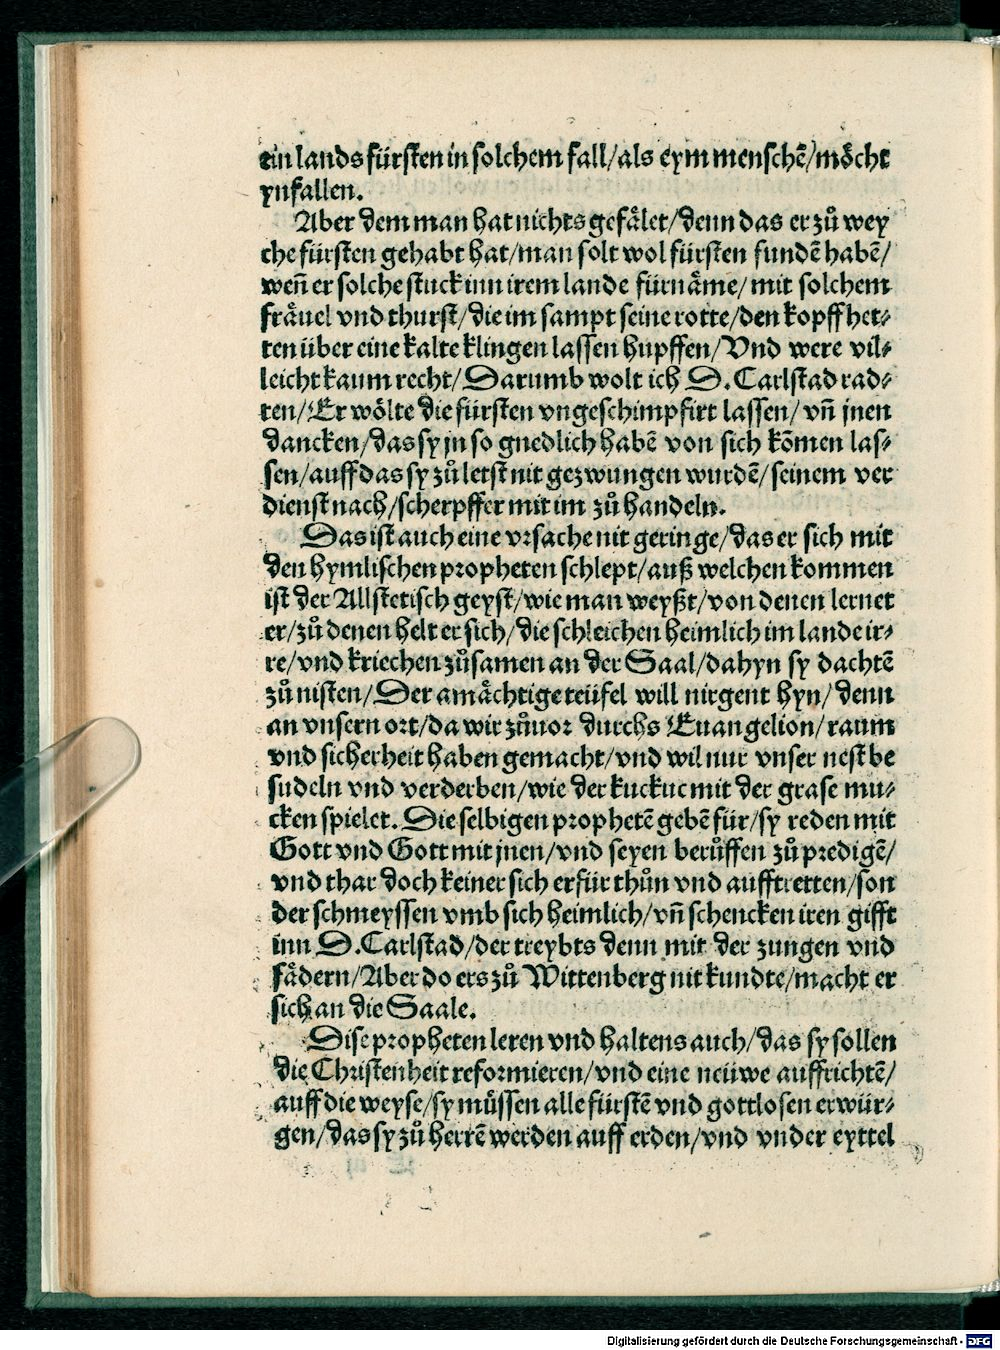 ein lands fürsten in solchem fall/als eym menschē/mȯcht
ynfallen.
Aber dem man hat nichts gefålet/denn das er zů wey
che fürsten gehabt hat/man solt wol fürsten fundē habē/
weñ er solche stuck inn irem lande fürnåme/ mit solchem
fråuel vnd thurst/die im sampt seine rotte/den kopff het⸗
ten über eine kalte klingen lassen hupffen/Vnd were vil⸗
leicht kaum recht/Darumb wolt ich D.Carlstad rad⸗
ten/Er wölte die fürsten vngeschimpfirt lassen/ vñ jnen
dancken/das sy jn so gnedlich habē von sich kōmen las⸗
sen/auff das sy zů letst nit gezwungen wurdē/seinem ver
dienst nach/scherpffer mit im zů handeln.
Das ist auch eine vrsache nit geringe/das er sich mit
den hymlischen propheten schlept/auß welchen kommen
ist der Allstetisch geyst/wie man weyßt/von denen lernet
er/zů denen helt er sich/die schleichen heimlich im lande ir⸗
re/vnd kriechen zůsamen an der Saal/dahyn sy dachtē
zů nisten/Der amåchtige teüfel will nirgent hyn/denn
an vnsern ort/da wir zůuor durchs Euangelion/raum
vnd sicherheit haben gemacht/vnd wil nur vnser nest be
sudeln vnd verderben/wie der kuckuc mit der grase mu⸗
cken spielet.Die selbigen prophetē gebē für/sy reden mit
Gott vnd Gott mit jnen/vnd seyen berůffen zů predigē/
vnd thar doch keiner sich erfür thůn vnd aufftretten/son
der schmeyssen vmb sich heimlich/vñ schencken iren gifft
inn D.Carlstad/der treybts denn mit der zungen vnd
fådern/Aber do ers zů Wittenberg nit kundte/macht er
sich an die Saale.
Dise propheten leren vnd haltens auch/das sy sollen
die Christenheit reformieren/vnd eine neüwe auffrichtē/
auff die weyse/sy müssen alle fürstē vnd gottlosen erwür⸗
gen/das sy zů herrē werden auff erden/vnd vnder eyttel
Digitalisierung gefördert durch die Deutsche Forschungsgemeinschaft - DFG